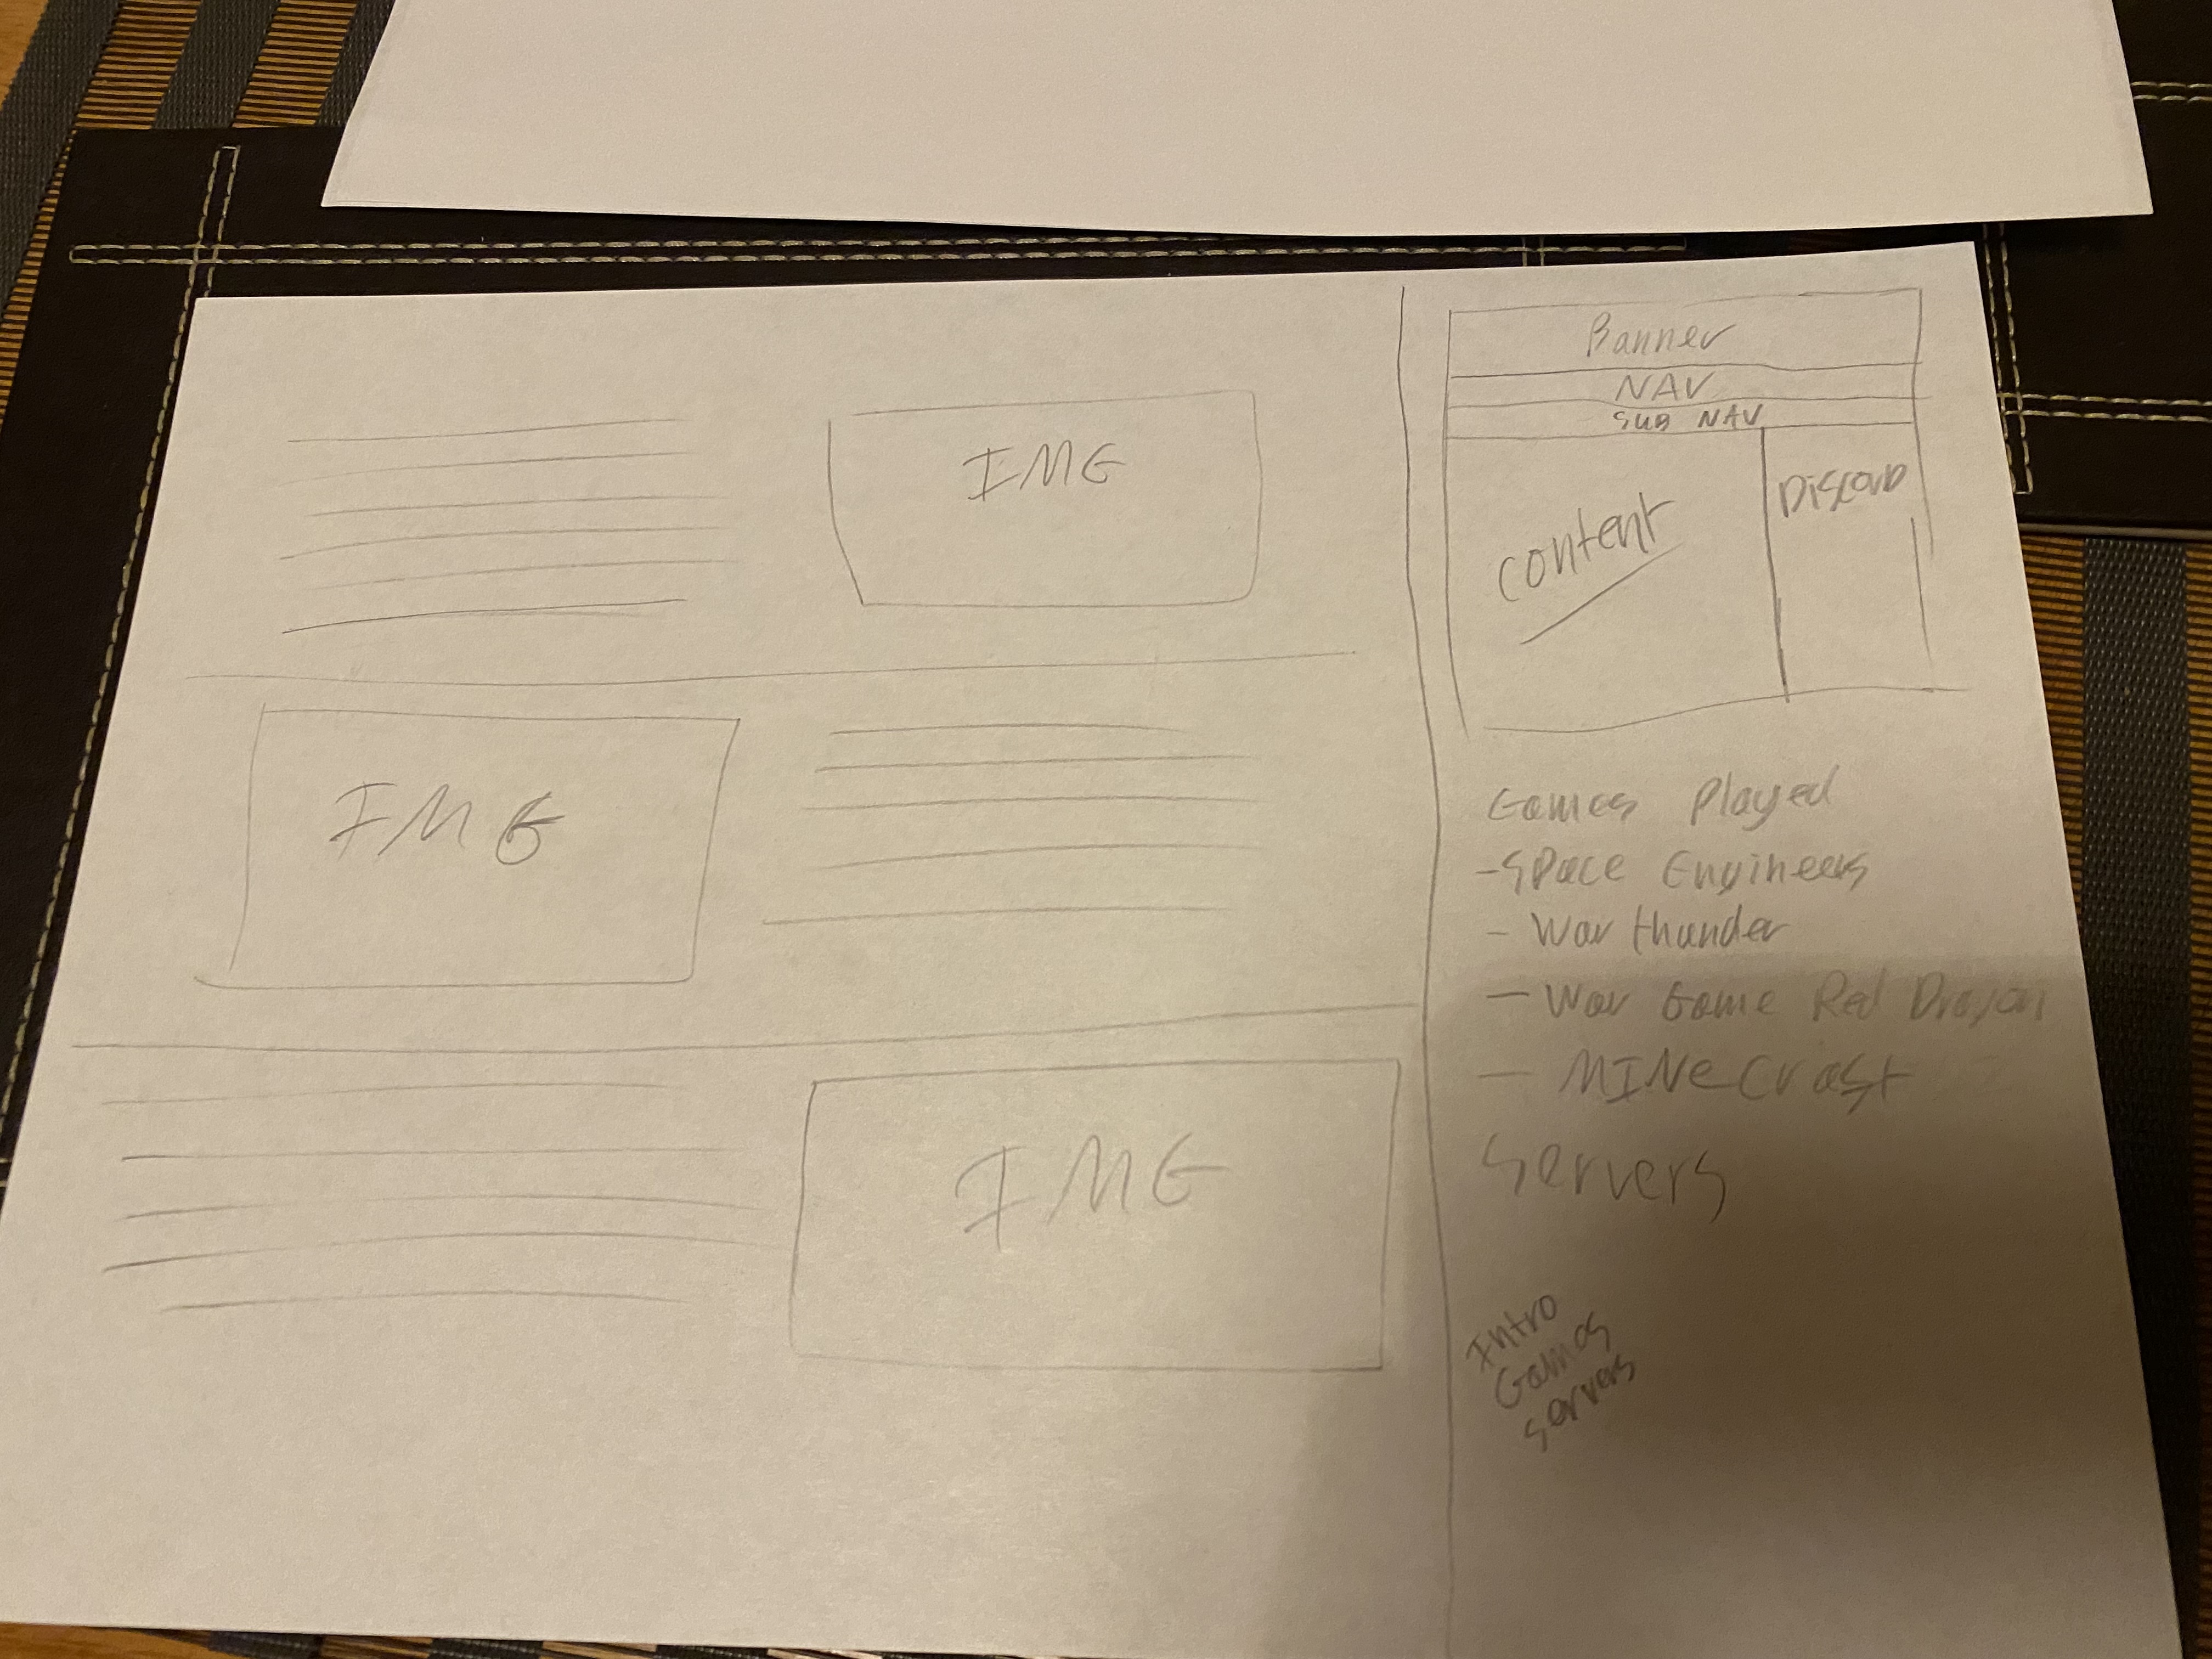 IMG
IMG
IMG
Banner
NAV
SUB NAV
content
Discord
Games Played
- Space Engineers
- War thunder
- War Game Red Dragon
- MINecraft
Servers
Intro
Games
servers